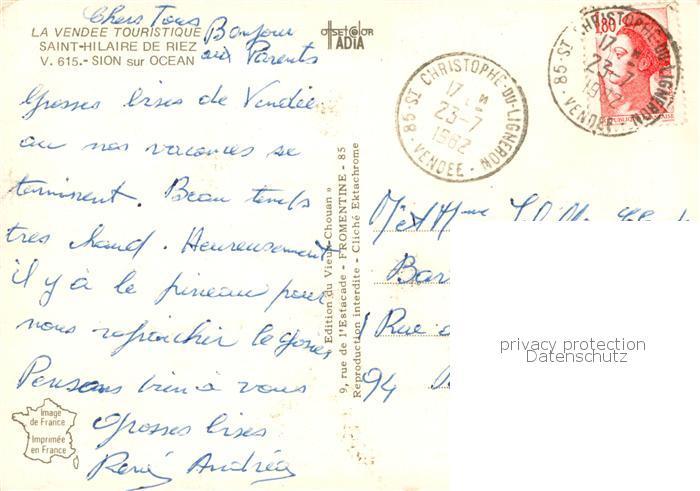 Chers Tous
Bonjour
aux Parents
LA VENDEE TOURISTIQUE
SAINT-HILAIRE DE RIEZ
V. 615.- SION sur OCEAN
offset color
ADIA
Grosses bises de Vendée
ou nos vacances se
terminent. Beau temps
tres chaud. Heureusement
il y à le pineau pour
nous rafraichir le gosier
Pensons bien à vous
Grosses bises
René Andrée
Image
de France
Imprimée
en France
Edition du Vieux-Chouan »
9, rue de l'Estacade - FROMENTINE - 85
Reproduction interdite - Cliché Ektachrome
85-ST CHRISTOPHE-DU-LIGNERON
17 H
23-7
1982
VENDEE
85-ST CHRISTOPHE-DU-LIGNERON
17 H
23-7
1982
VENDEE
1,80
M et Mme
Bar
1 Rue
94
privacy protection
Datenschutz